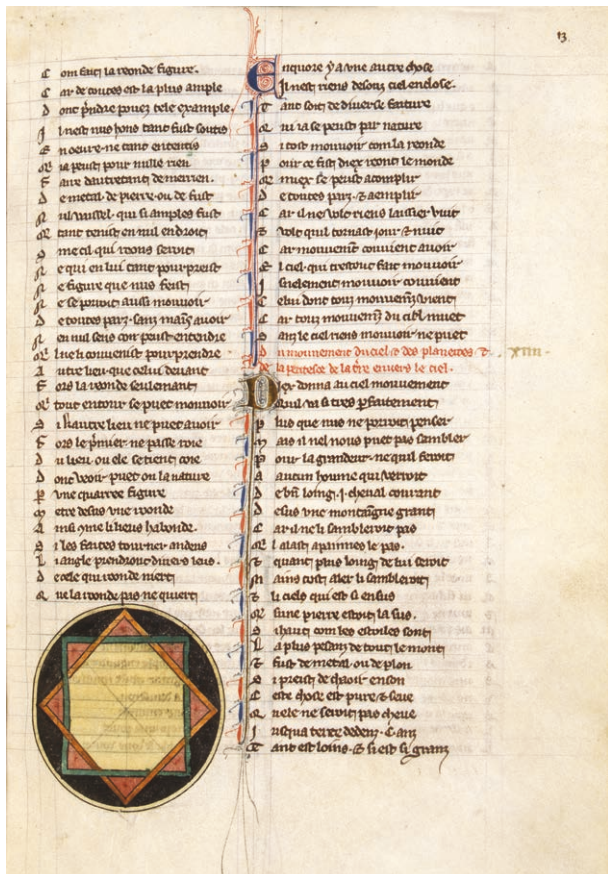 13
C om fait la reonde figure.
C ar de toutes est la plus ample
D ont prēdre pouez tele example.
I l nest nus hons tant fust soutis
E n oeure ne tant ententis
Q ia peust pour nulle rien
F aire dautretant de merrien.
D e metal. de pierre. ou de fust
N ul vaissel. qui si amples fust
Q tant tenist en nul endroit
C me cil qui reons seroit
N e qui en lui tant pourpreist
N e figure que nus feist
N e se porroit aussi mouuoir
D e toutes parz. sanz
E n nul sens con peust entendre
Q lue li conuenist pourprendre
A utre lieu que celui deuant
F ors la reonde seulemant
Q tout entour se puet mouuoir
S i kautre lieu ne puet auoir
F ors le premier ne passe roie
D u lieu ou ele se tient coie
D ont veoir puet on la nature
P vne quarree figure
M etre desus vne reonde
A insi
S i les faites tourner andeus
L i angle prendront diuers leus.
D e cele qui reonde niert
Q ue la reonde pas ne quiert
E nquore y a vne autre chose
Q il nest riens desouz ciel enclose.
T ant soit de diuerse faiture
Q ui ia se peust par nature
S i tost mouuoir com la reonde
P our ce fist diex reont le monde
Q miex se peust acomplir
D e toutes parz. & aemplir
C ar il ne volt riens laissier vuit
& volt quil tornast ior & nuit
C ar mouuemt conuient auoir
E l ciel. qui trestout fait mouuoir
I snelement mouuoir conuient
C elui dont touz mouuemz vient
C ar touz mouuemz du ciel muet
S anz le ciel riens mouuoir ne puet
D u mouuement du ciel & des planetes. & . xiiii.
de la petitesce de la tre enuers le ciel.
D iex donna au ciel mouuement
Q uil va si tres pfaitement
P lus que nus ne porroit penser
M ais il nel nous puet pas sambler
P our la grandeur. ne quil feroit
A aucun houme qui verroit
D e bn loing. i. cheual courant
D esus vne montaigne grant
C ar il ne li sambleroit pas
Q l alast a painnes le pas.
& quant plus loing de lui seroit
M ains tost aler li sambleroit
& li ciels qui est si ensus
Q sune pierre estoit la sus.
S i haut com les estoiles sont
L a plus pesanz de tout le mont
& fust de metal. ou de plon
S i preist de chaoir enson
C este chose est pure & seue
Q uele ne seroit pas cheue
I usqua terre dedenz. C. anz
T ant est loins. & si est si granz